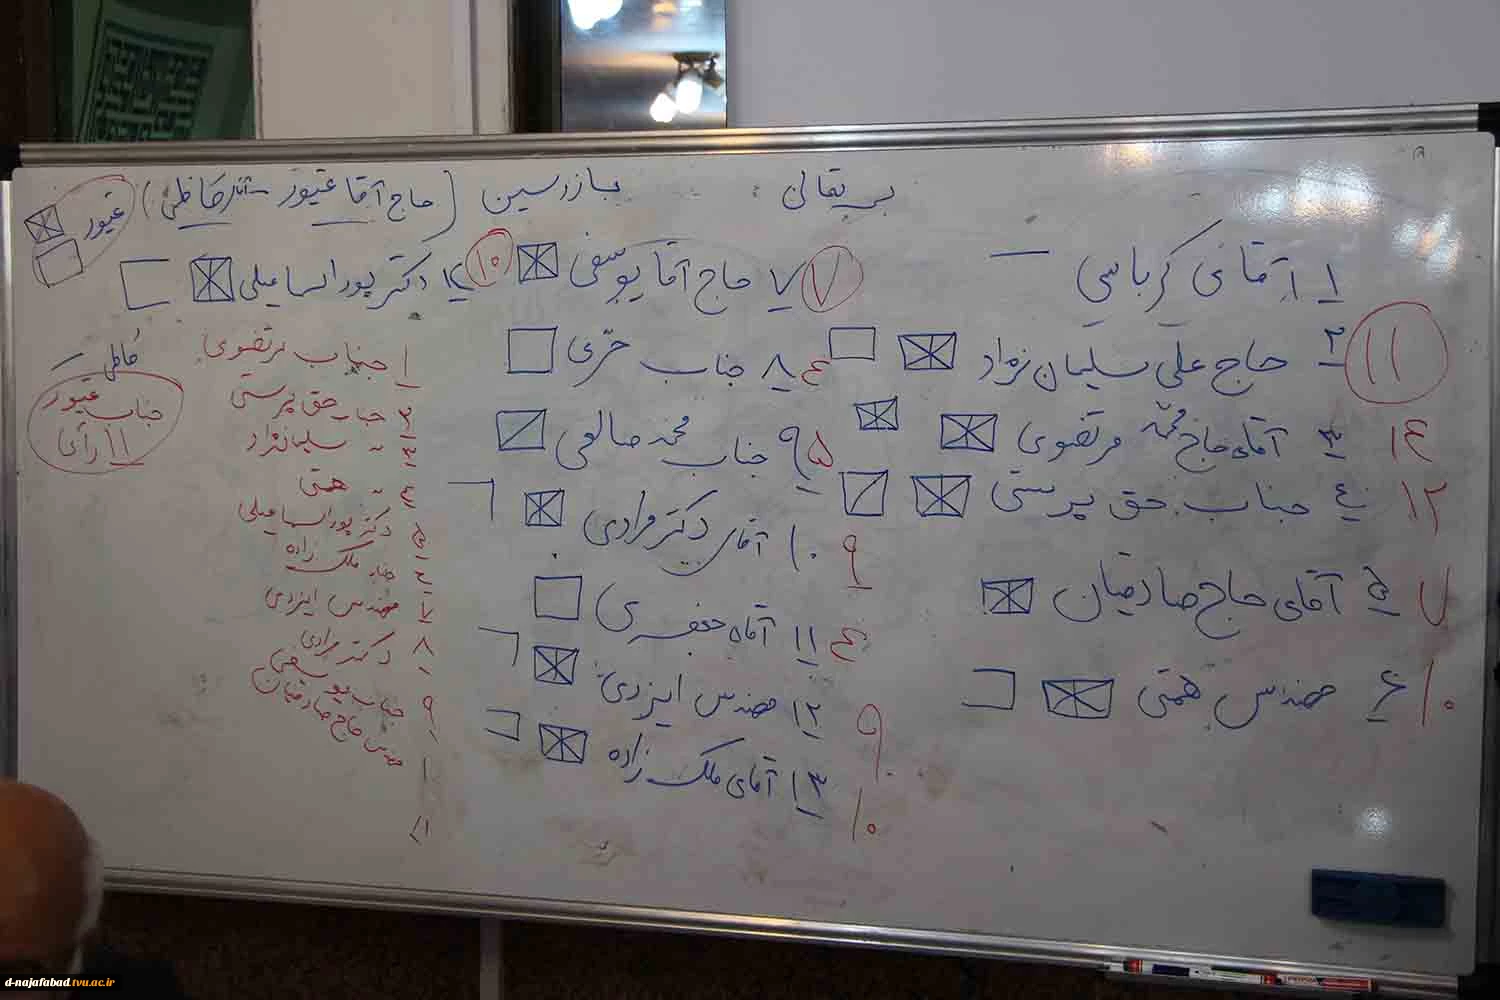 بازرسین (حاج آقا غیور - آقای کاظمی)
غیور
۱ آقای کرباسی
۲ حاج علی سلیمان نژاد
۱۱
۳ آقای حاج محمد مرتضوی
۱۴
۴ جناب حق پرستی
۱۲
۵ آقای حاج صادقیان
۷
۶ مهندس همتی
۱۰
۷ حاج آقا یوسفی
۷
۸ جناب حری
۴
۹ جناب محمد صالحی
۵
۱۰ آقای دکتر مرادی
۹
۱۱ آقای جعفری
۴
۱۲ مهندس ایزدی
۹
۱۳ آقای ملک زاده
۱۰
دکتر پور اسماعیلی
۱۰
۱ جناب مرتضوی
۲ جناب حق پرستی
۳ " سلیمان نژاد
۴ " همتی
۵ دکتر پور اسماعیلی
۶ جناب ملک زاده
۷ مهندس ایزدی
۸ دکتر مرادی
۹ جناب یوسفی
مهندس حاج صادقیان
کاظمی -
جناب غیور
۱۱ رأی
d-najafabad.tvu.ac.ir